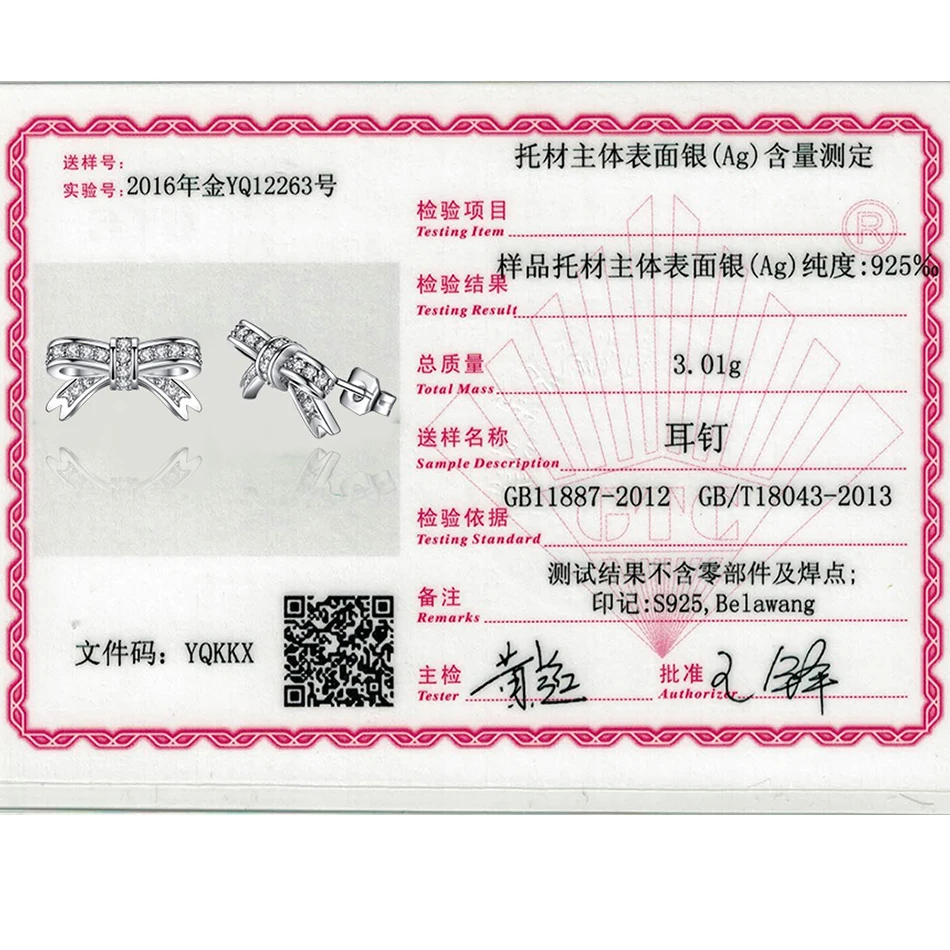 送样号:
实验号:2016年金YQ12263号
托材主体表面银(Ag)含量测定
检验项目
Testing Item
样品托材主体表面银(Ag)纯度:925‰
检验结果
Testing Result
总质量 3.01g
Total Mass
送样名称 耳钉
Sample Description
GB11887-2012 GB/T18043-2013
检验依据
Testing Standard
测试结果不含零部件及焊点;
备注 印记:S925,Belawang
Remarks
主检
Tester
批准
Authorizer
文件码: YQKKX
GTC
®